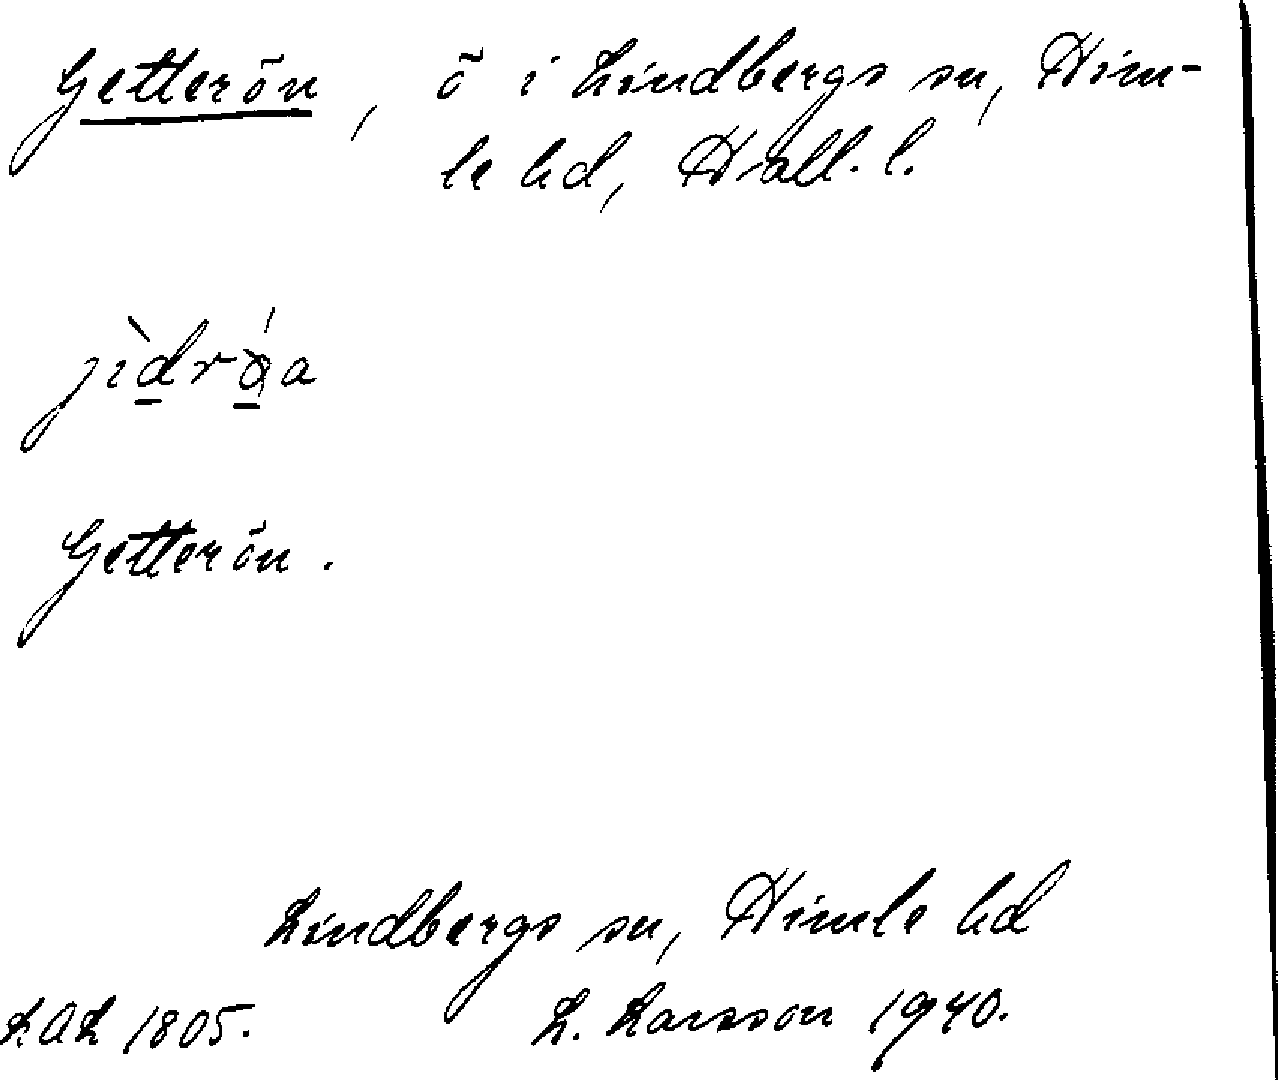 Getterön, ö i Lindbergs sn, Him-
le hd, Hall. l.
Getterön.
Lindbergs sn, Himle hd
LAL 1805. L. Larsson 1940.